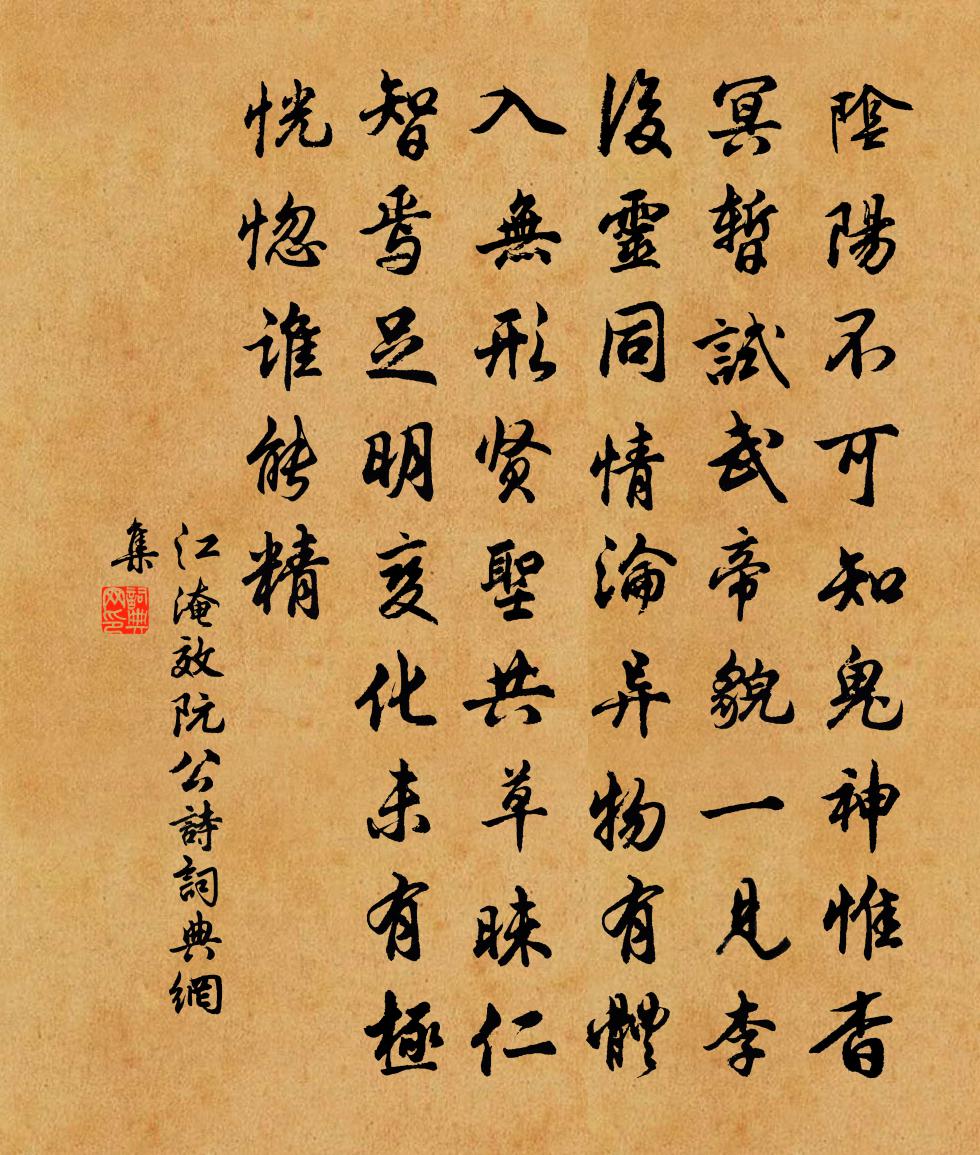 陰陽不可知鬼神惟杳
冥暫試武帝貌一見李
後靈同情淪异物有體
入無形贤聖共草昧仁
智焉足明变化未有極
恍惚谁能精
江淹效阮公詩詞典網
集
詞典
网印